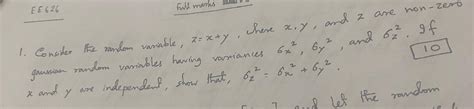 EE626
Full marks
1. Consider the random variable, z = x+y, where x, y, and z are non-zero
gaussian random variables having variances σx², σy², and σz². If
x and y are independent, show that, σz² = σx² + σy². 10
let the random